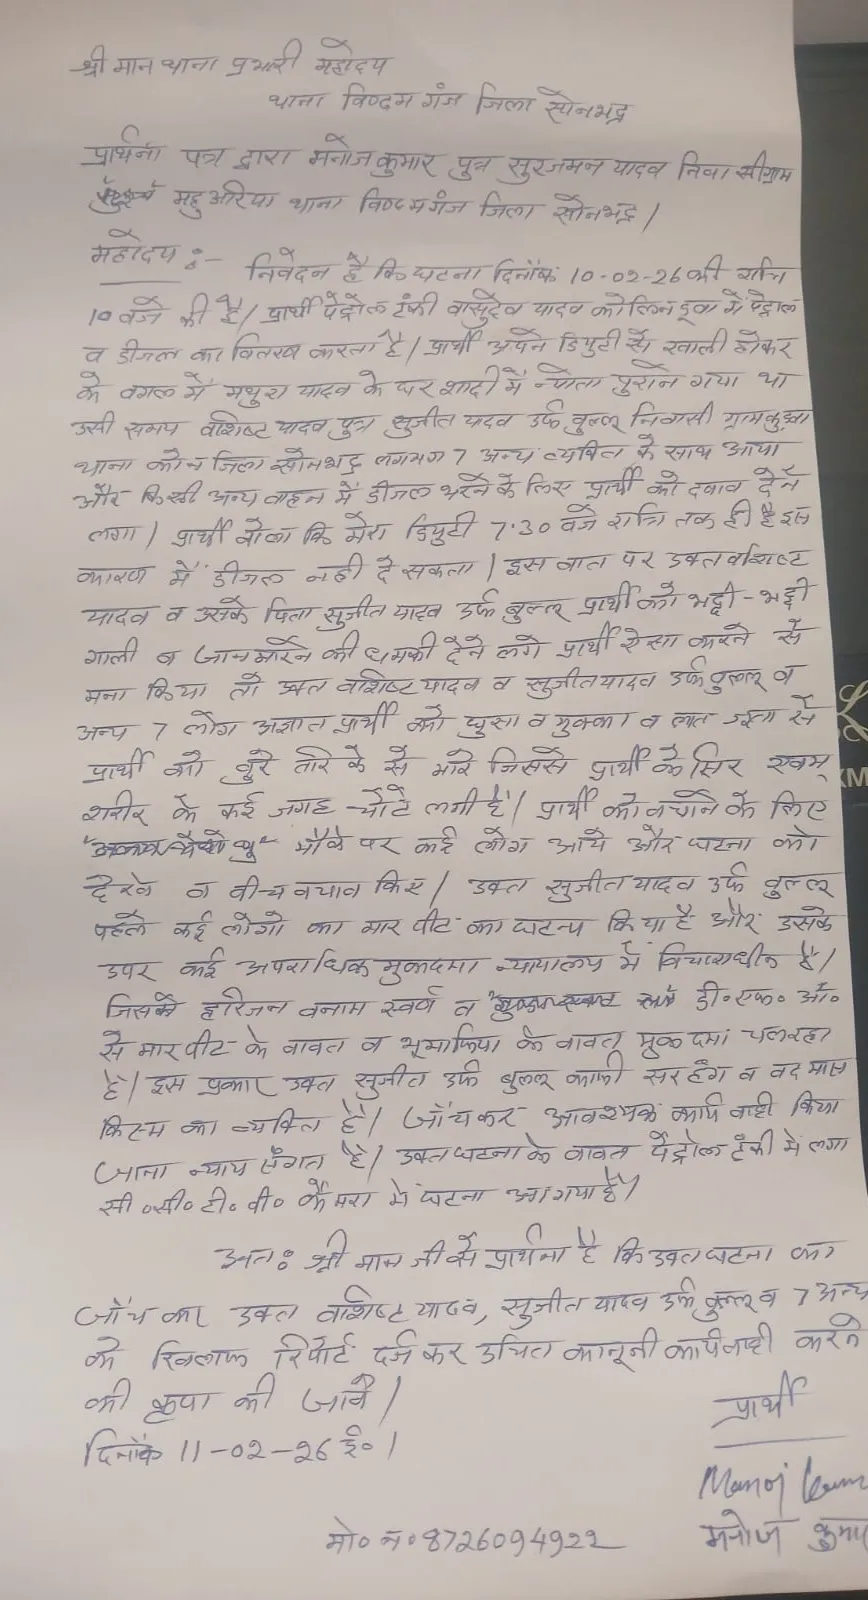 श्री मान थाना प्रभारी महोदय
थाना विण्ढम गंज जिला सोनभद्र
प्रार्थना पत्र द्वारा मनोज कुमार पुत्र सुरजमन यादव निवासी ग्राम
महुअरिया थाना विण्ढमगंज जिला सोनभद्र।
महोदय :- निवेदन है कि घटना दिनाँक 10-02-26 की रात्रि
10 बजे की है। प्रार्थी पेट्रोल टंकी वासुदेव यादव कोलिनडूबा में पेट्रोल
व डीजल का वितरण करता है। प्रार्थी अपने डिपुटी से खाली होकर
के बगल में मथुरा यादव के घर शादी में न्योता पुराने गया था
उसी समय वशिष्ट यादव पुत्र सुजीत यादव उर्फ बुल्लू निवासी ग्राम
थाना कोन जिला सोनभद्र लगभग 7 अन्य व्यक्ति के साथ आया
और किसी अन्य वाहन में डीजल भरने के लिए प्रार्थी को दवाव देने
लगा। प्रार्थी बोला कि मेरा डिपुटी 7.30 बजे रात्रि तक ही है इस
कारण में डीजल नही दे सकता। इस बात पर उक्त वशिष्ट
यादव व उसके पिता सुजीत यादव उर्फ बुल्लू प्रार्थी को भद्दी-भद्दी
गाली व जान मारने की धमकी देने लगे प्रार्थी ऐसा करने से
मना किया तो उक्त वशिष्ट यादव व सुजीत यादव उर्फ बुल्लू व
अन्य 7 लोग अज्ञात प्रार्थी को घुसा व मुक्का व लात जूता से
प्रार्थी को बुरे तरिके से मारे जिससे प्रार्थी के सिर एवम्
शरीर के कई जगह चोटे लगी है। प्रार्थी को बचाने के लिए
मौके पर कई लोग आये और घटना को
देखे व बीच बचाव किए। उक्त सुजीत यादव उर्फ बुल्लू
पहले कई लोगो का मार पीट का घटना किया है और उसके
उपर कई अपराधिक मुकदमा न्यायालय में विचाराधीन है।
जिसमे हरिजन बनाम स्वर्ण व डी॰एफ॰ओ॰
से मारपीट के बावत व भूमाफिया के बावत मुकदमा चल रहा
है। इस प्रकार उक्त सुजीत उर्फ बुल्लू काफी सरहंग व बदमास
किस्म का व्यक्ति है। जाँच कर आवश्यक कार्यवाही किया
जाना न्याय संगत है। उक्त घटना के बावत पेट्रोल टंकी में लगा
सी॰सी॰टी॰वी॰ कैमरा में घटना आ गया है।
अतः श्री मान जी से प्रार्थना है कि उक्त घटना का
जाँच कर उक्त वशिष्ट यादव, सुजीत यादव उर्फ बुल्लू व 7 अन्य
के खिलाफ रिपोर्ट दर्ज कर उचित कानूनी कार्यवाही करने
की कृपा की जावे।
प्रार्थी
दिनाँक 11-02-26 ई॰।
Manoj Kum
मनोज कुमार
मो॰ न॰ 8726094922